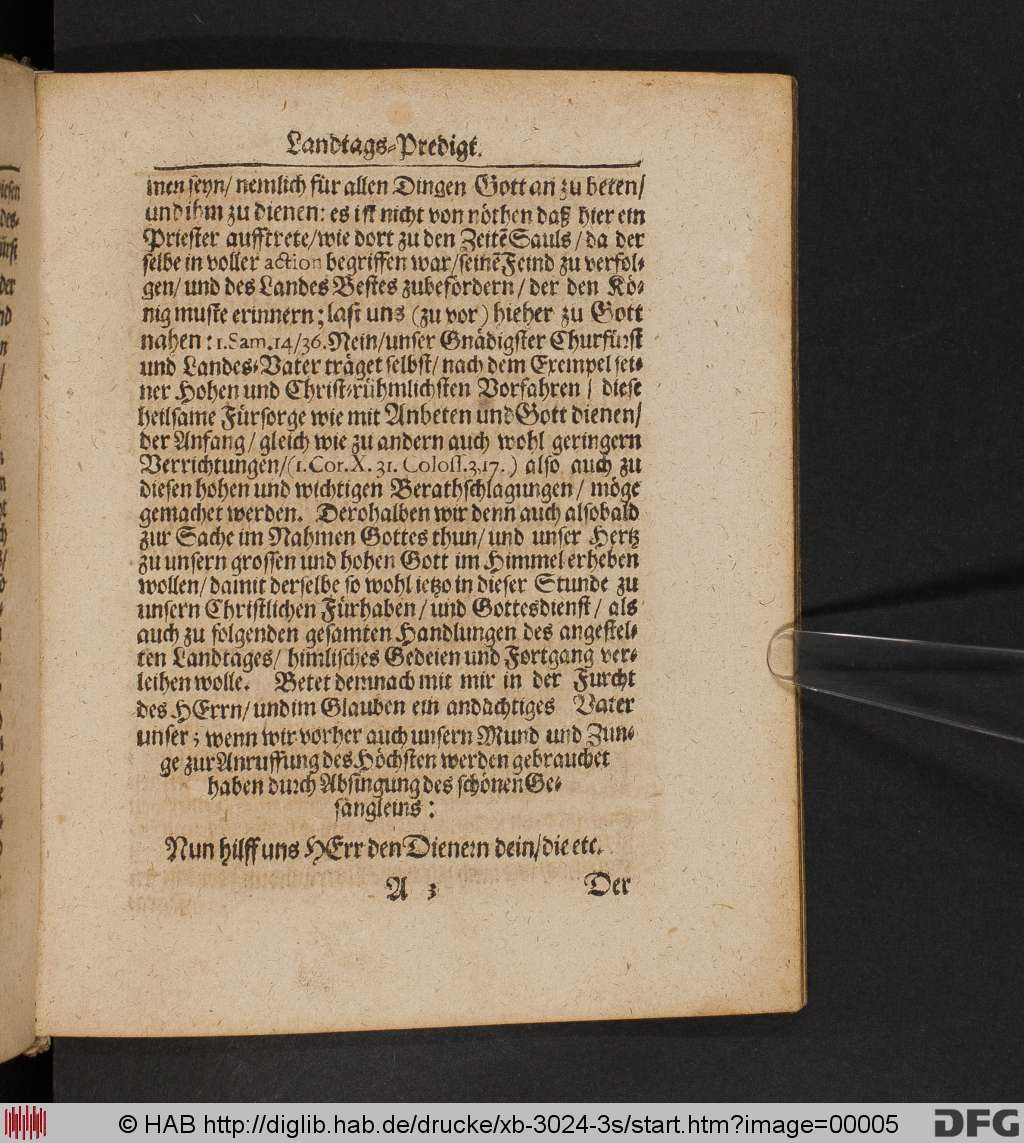 Landtags-Predigt.
men seyn/ nemlich für allen Dingen Gott an zu beten/
und ihm zu dienen: es ist nicht von nöthen daß hier ein
Priester aufftrete/wie dort zu den Zeitē Sauls/da der
selbe in voller action begriffen war/seinē Feind zu verfol-
gen/ und des Landes Bestes zubefordern/ der den Kö-
nig muste erinnern; last uns (zu vor) hieher zu Gott
nahen: 1. Sam. 14/36. Nein/unser Gnädigster Churfürst
und Landes-Vater träget selbst/ nach dem Exempel sei-
ner Hohen und Christ-rühmlichsten Vorfahren/ diese
heilsame Fürsorge wie mit Anbeten und Gott dienen/
der Anfang/ gleich wie zu andern auch wohl geringern
Verrichtungen/(1. Cor. X. 31. Coloss. 3,17.) also auch zu
diesen hohen und wichtigen Berathschlagungen/ möge
gemachet werden. Derohalben wir denn auch alsobald
zur Sache im Nahmen Gottes thun/ und unser Hertz
zu unsern grossen und hohen Gott im Himmel erheben
wollen/ damit derselbe so wohl ietzo in dieser Stunde zu
unsern Christlichen Fürhaben/ und Gottesdienst/ als
auch zu folgenden gesamten Handlungen des angestel-
ten Landtages/ himlisches Gedeien und Fortgang ver-
leihen wolle. Betet demnach mit mir in der Furcht
des HErrn/ und im Glauben ein andächtiges Vater
unser; wenn wir vorher auch unsern Mund und Zun-
ge zur Anruffung des Höchsten werden gebrauchet
haben durch Absingung des schönen Ge-
sängleins:
Nun hilff uns HErr den Dienern dein/die etc.
A 3 Der
© HAB http://diglib.hab.de/drucke/xb-3024-3s/start.htm?image=00005
DFG